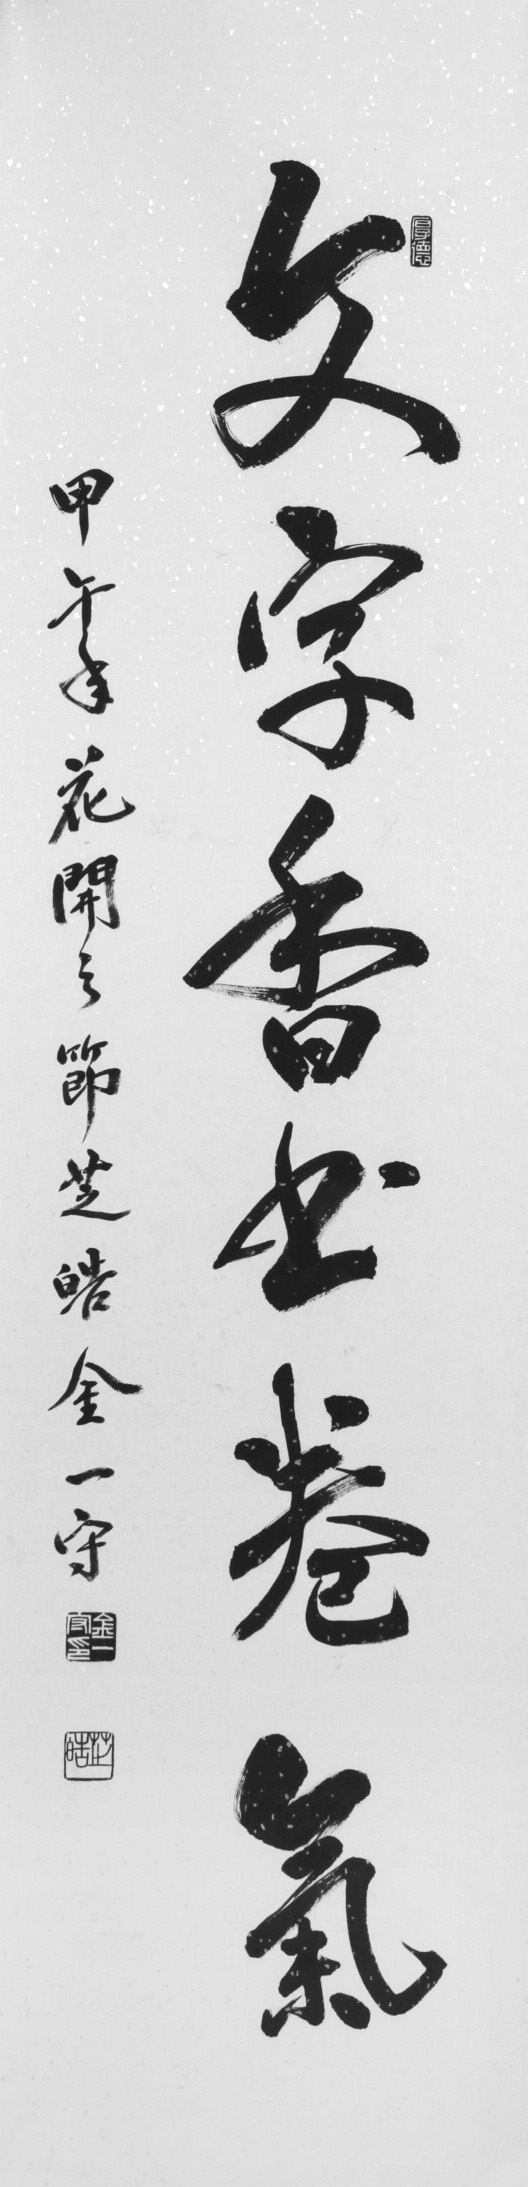 厚德
文字香書卷氣
甲午年花開之節芝皓金一守
金一守印
芝皓